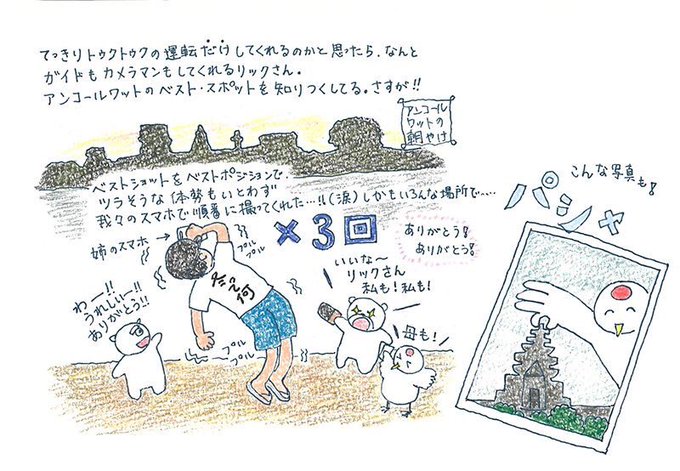 てっきりトゥクトゥクの運転だけしてくれるのかと思ったら、なんと
ガイドもカメラマンもしてくれるリックさん。
アンコールワットのベスト・スポットを知りつくしてる。さすが!!
アンコール
ワットの
朝やけ
ベストショットをベストポジションで、
ツラそうな体勢もいとわず
我々のスマホで順番に撮ってくれた…!!(涙)しかもいろんな場所で……
姉のスマホ→
プル
プル
×3回
ありがとう!
ありがとう!
わー!!
うれしいー!!
ありがとう!!
プル
プル
プル
プル
いいな〜
リックさん
私も!私も!
母も!
こんな写真も!
パシャ